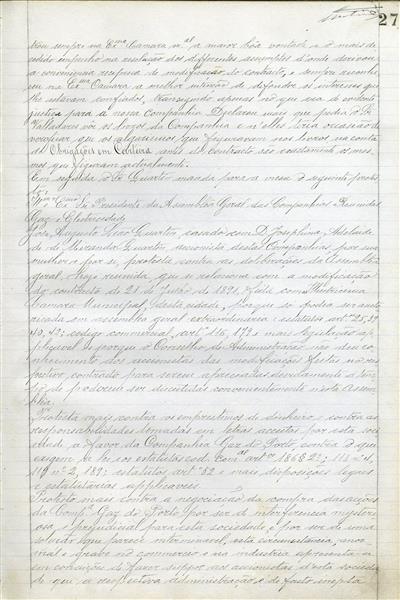 27
trou sempre na Exma Camara Mal a maior bôa vontade e o mais de-
cidido empenho na resolução dos differentes assumptos d'onde derivou
a convenien resposta de modificação do contracto, e sempre reconhe-
ceu na Exma Camara a melhor intenção de defender os interesses que
lhe estavam confiados, transigindo apenas no que era de evidente
justiça para a nossa Companhia. Declarou mais que pedia ao Sr
Valladares vêr os livros da Companhia e n'elles teria occasião de
verificar que os algarismos que figuravam nos livros na conta
de Obrigações em Carteira antes do Contracto são exactamente os mes-
mos que figuram actualmente.
Em seguida o Sr Duarte manda para a mesa o seguinte protes-
to:
Exmo Sr Presidente da Assembléa Geral das Companhias Reunidas
Gaz e Electricidade
José Augusto Duarte, casado com D. Josephina Adelaide
de Miranda Duarte accionista d'estas Companhias, por sua
mulher e por si, protesta contra as deliberações da Assembléa
geral hoje reunida, que se relacione com a modificação
do contracto de 21 de Junho de 1891, feita com a Illustrissima
Camara Municipal d'esta cidade, porque só podia ser aucto-
risada em assembléa geral extraordinaria: estatutos artos 25, 37
40, 42; codigo commercial, artos 116, 179 e mais legislação ap-
plicavel e porque o Conselho de Administração não deu co-
nhecimento aos accionistas das modificações feitas no res-
pectivo contracto para serem apreciadas devidamente a tem-
po de poderem ser discutidas convenientemente n'esta Assem-
bléa.
Protesta mais contra os emprestimos de dinheiro, contra as
responsabilidades tomadas em letras acceites por esta soci-
edade, a favor da Companhia Gaz do Porto, contra o que
exigem a lei e os estatutos cod. com.
119 nº 2, 189; estatutos arto 52 e mais disposições legaes
e estatutarias applicaveis.
Protesta mais contra a negociação da compra das acções
da Compa Gaz do Porto por ser de interferencia mysteri-
osa e prejudicial para esta sociedade, e por ser de uma
solução que parece interminavel; esta circumstancia, anor-
mal e grave no commercio e na industria apresenta-a
em condições de fazer suppor aos accionistas d'esta sociedade
de que a respectiva administração é de facto inepta